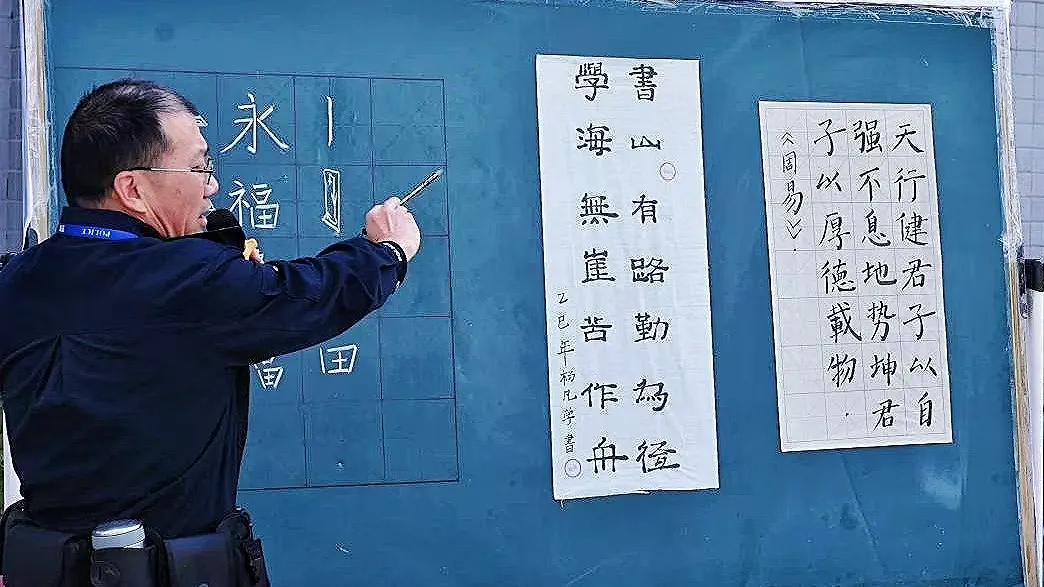 永
福
富
丨
田
書山有路勤為徑
學海無崖苦作舟
乙巳年杨凡学書
天行健君子以自
强不息地势坤君
子以厚德載物.
《周易》.
POLICE